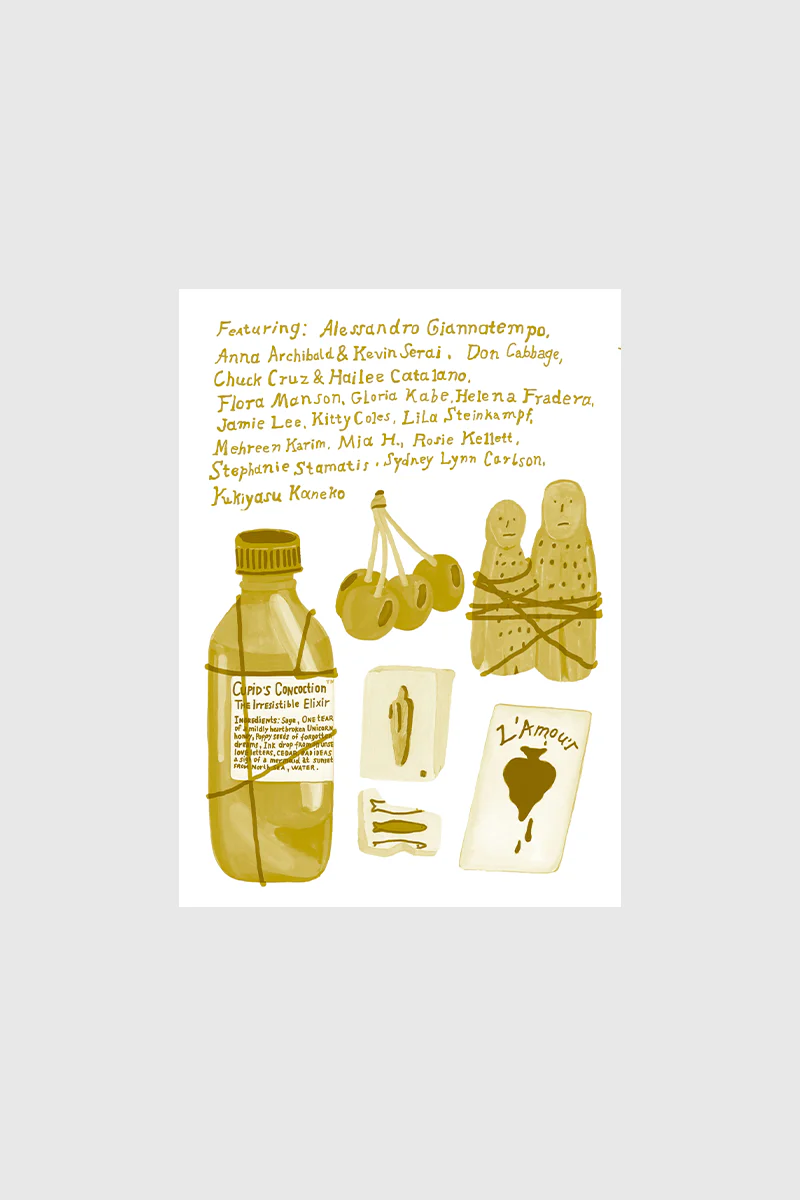 Featuring: Alessandro Giannatempo,
Anna Archibald & Kevin Serai, Don Cabbage,
Chuck Cruz & Hailee Catalano,
Flora Manson, Gloria Kabe, Helena Fradera,
Jamie Lee, Kitty Coles, Lila Steinkampf,
Mehreen Karim, Mia H., Rosie Kellett,
Stephanie Stamatis, Sydney Lynn Carlson,
Yukiyasu Kaneko
Cupid's Concoction ™
The Irresistible Elixir
Ingredients: Sage, ONE TEAR
of a mildly heartbroken Unicorn,
honey, Poppy seeds of forgotten
dreams, Ink drop from
love letters, CEDAR, BAD IDEAS
a sigh of a mermaid at sunset
FROM North SEA, WATER.
L'Amour